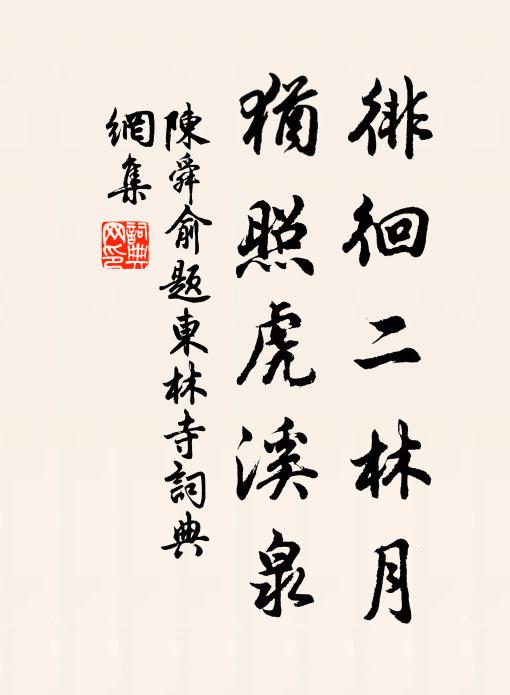 徘徊二林月
猶照虎溪泉
陳舜俞題東林寺詞典
網集
詞典
网印